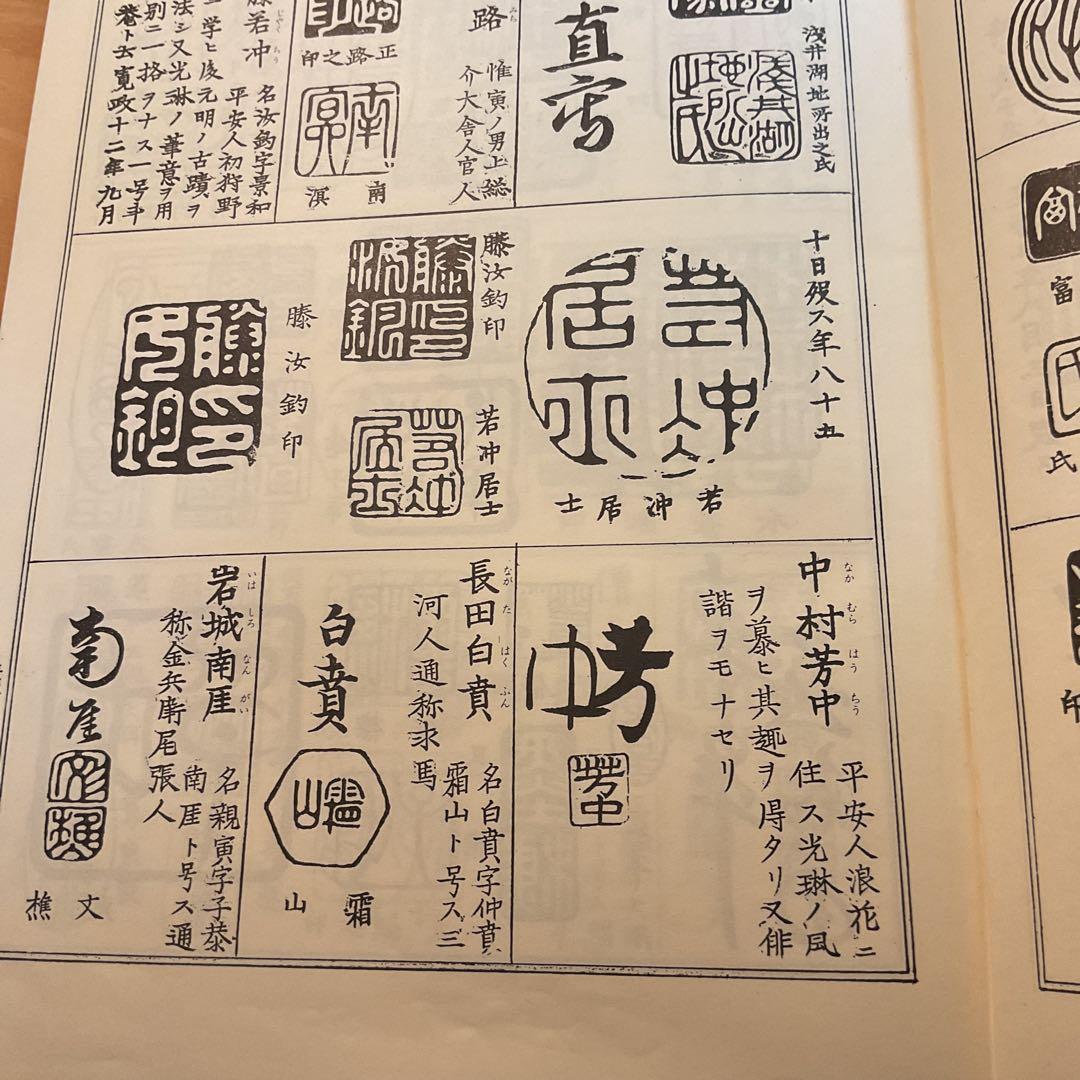 浅井湖地所出之氏
直寄
路
みち
惟寅ノ男上総
介大舎人官人
正路之印
南溟
藤若冲
名汝鈞字景和
平安人初狩野
学ヒ後元明ノ古蹟ヲ
法シ又光琳ノ筆意ヲ用
別ニ一格ヲナス一号斗
菴ト云寛政十二年九月
十日歿ス年八十五
若冲居士
藤汝鈞印
若冲居士
藤汝鈞印
中村芳中
なか むら はう ちう
平安人浪花ニ
住ス光琳ノ風
ヲ慕ヒ其趣ヲ得タリ又俳
諧ヲモナセリ
芳中
長田白賁
なが た はく ふん
名白賁字仲賁
霜山ト号ス三
河人通称求馬
白賁
霜山
岩城南厓
いは しろ なん がい
名親寅字子恭
南厓ト号ス通
称金兵衛尾張人
南厓
文樵
富
氏
印